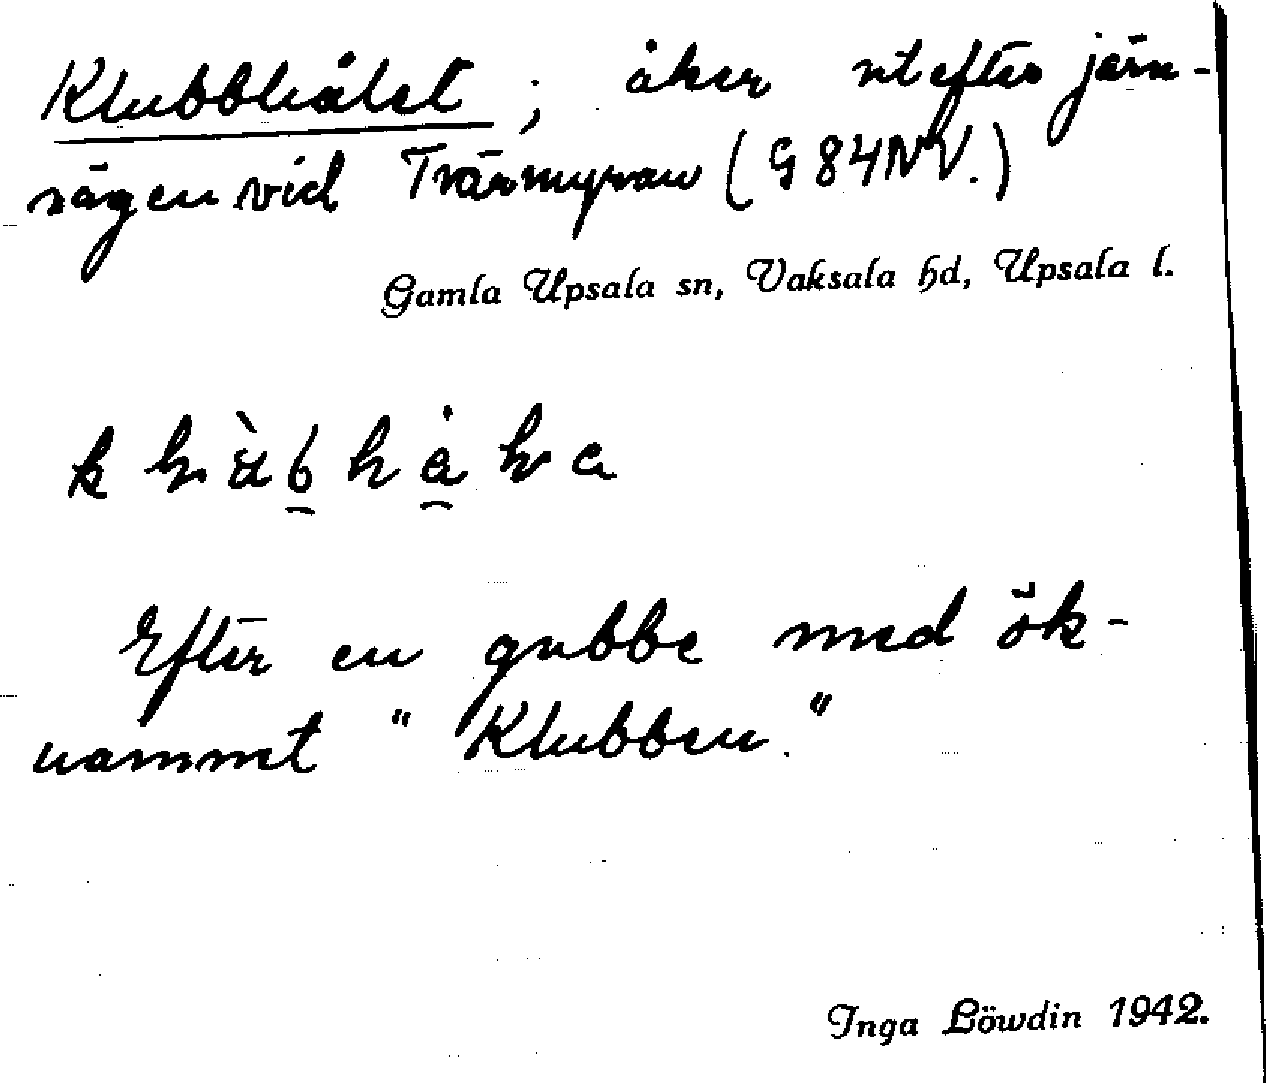 Klubbhålet; åker utefter järn-
vägen vid Tvärmyran (G 84NV.)
Gamla Upsala sn, Vaksala hd, Upsala l.
Efter en gubbe med ök-
nammet "Klubben."
Inga Löwdin 1942.